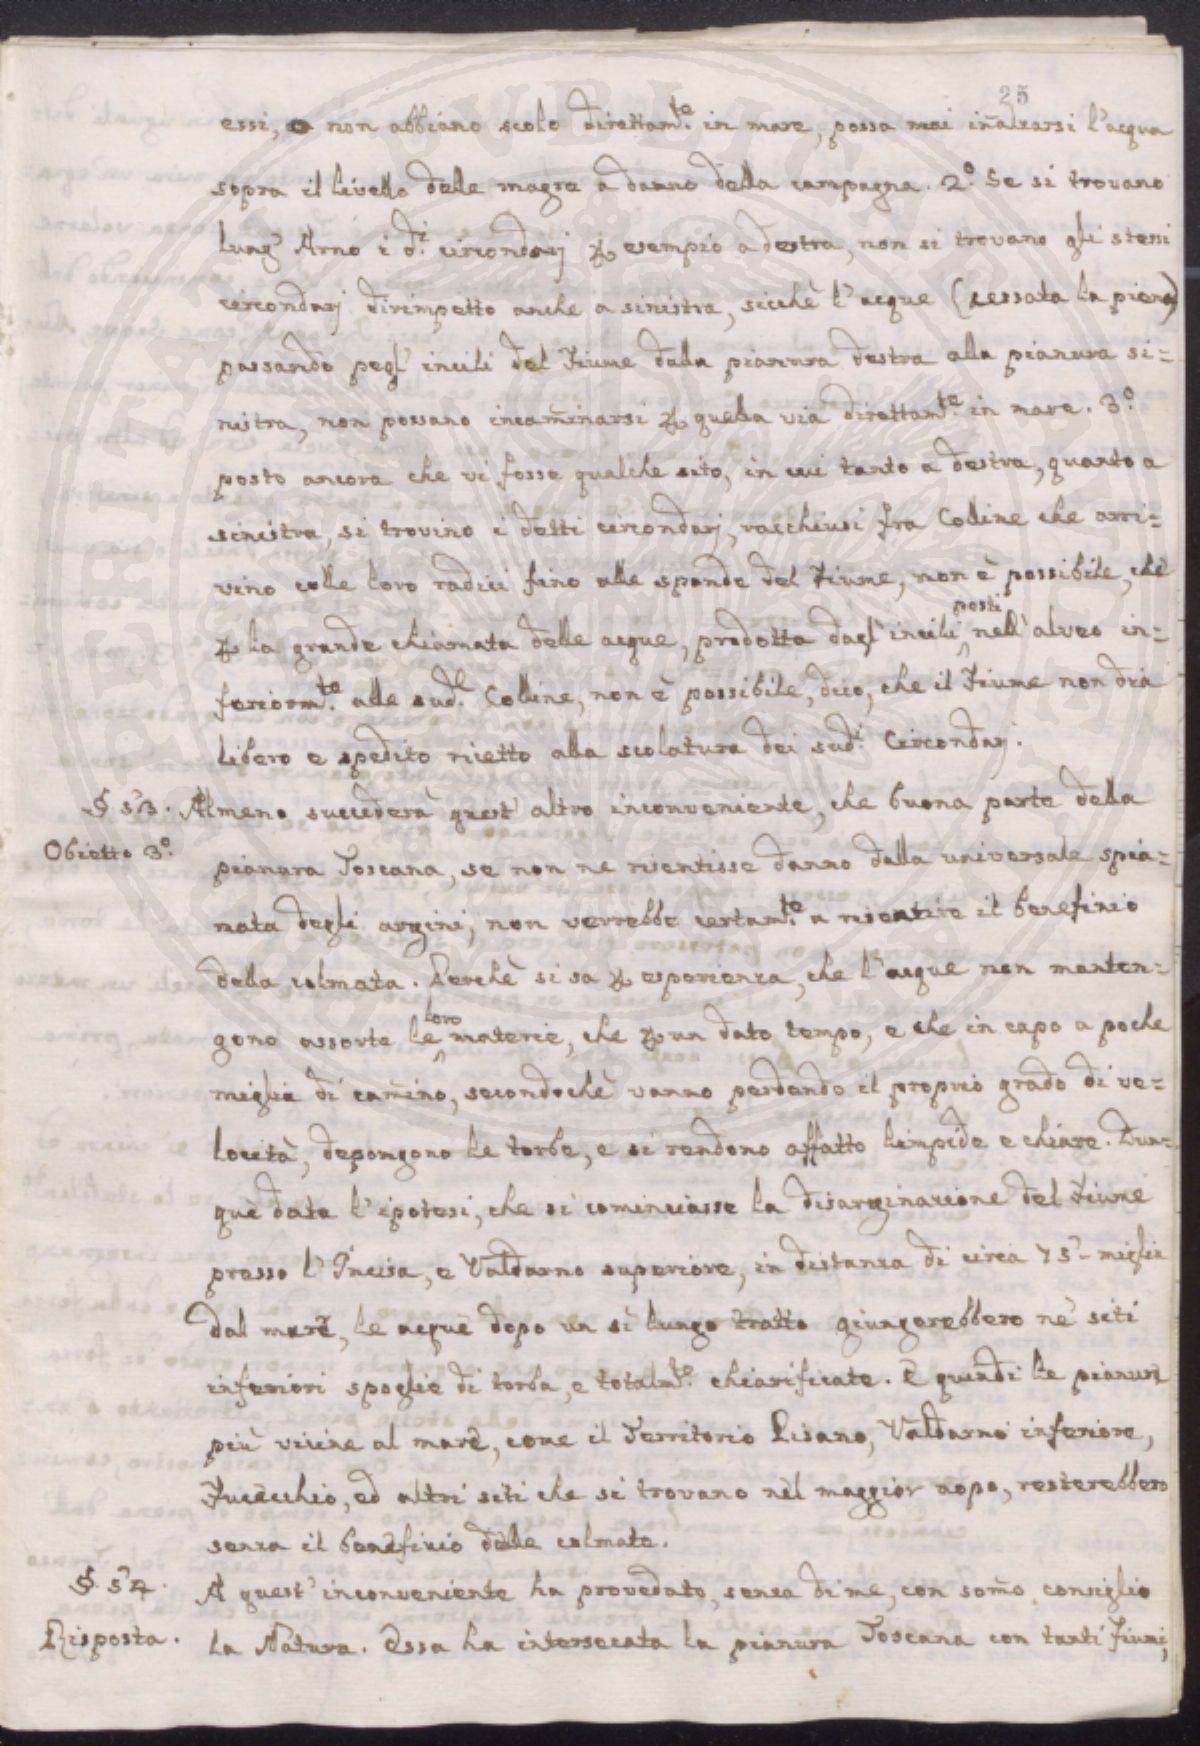 25
essi, o non abbiano scolo direttam.te in mare, possa mai inalzarsi l'acqua
sopra il livello delle magre a danno della campagna. 2.° Se si trovano
lung' Arno i d.i circondarj p esempio a destra, non si trovano gli stessi
circondarj dirimpetto anche a sinistra, sicchè l'acque (cessata la piena)
passando pegl' incili del Fiume dalla pianura destra alla pianura si=
nistra, non possano incam̃inarsi p quella via direttam.te in mare. 3.°
posto ancora che vi fosse qualche sito, in cui tanto a destra, quanto a
sinistra, si trovino i detti circondarj, racchiusi fra Colline che arri=
vino colle loro radici fino alle sponde del Fiume, non è possibile, che
p la grande chiamata delle acque, prodotta dagl' incili posti nell' alveo in=
feriorm.te alle sud.e Colline, non è possibile, dico, che il Fiume non dia
libero e spedito ricetto alla scolatura dei sud.i Circondarj.
§ 53. Almeno succederà quest' altro inconveniente, che buona parte della
Obietto 3.° pianura Toscana, se non ne risentisse danno dalla universale spia=
nata degli argini, non verrebbe certam.te a risentire il benefizio
della colmata. Perchè si sa p esperienza, che l'acque non manten=
gono assorte le loro materie, che p un dato tempo, e che in capo a poche
miglia di cam̃ino, secondochè vanno perdendo il proprio grado di ve=
locità, depongono le torbe, e si rendono affatto limpide e chiare. Dun=
que data l'ipotesi, che si cominciasse la disarginazione del Fiume
presso l'Incisa, e Valdarno superiore, in distanza di circa 75 miglia
dal mare, le acque dopo un sì lungo tratto giungerebbero ne' siti
inferiori spoglie di torba, e totalm.te chiarificate. E quindi le pianure
più vicine al mare, come il Territorio Pisano, Valdarno inferiore,
Fucecchio, ed altri siti che si trovano nel maggior uopo, resterebbero
senza il benefizio delle colmate.
§ 54. A quest' inconveniente ha provedato, senza di me, con som̃o consiglio
Risposta. la Natura. Essa ha intersecata la pianura Toscana con tanti Fiumi,